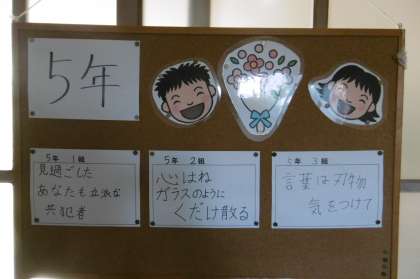 5年
5年 1組
見過ごした
あなたも立派な
共犯者
5年 2組
心はね
ガラスのように
くだけ散る
5年 3組
言葉は刃物
気をつけて